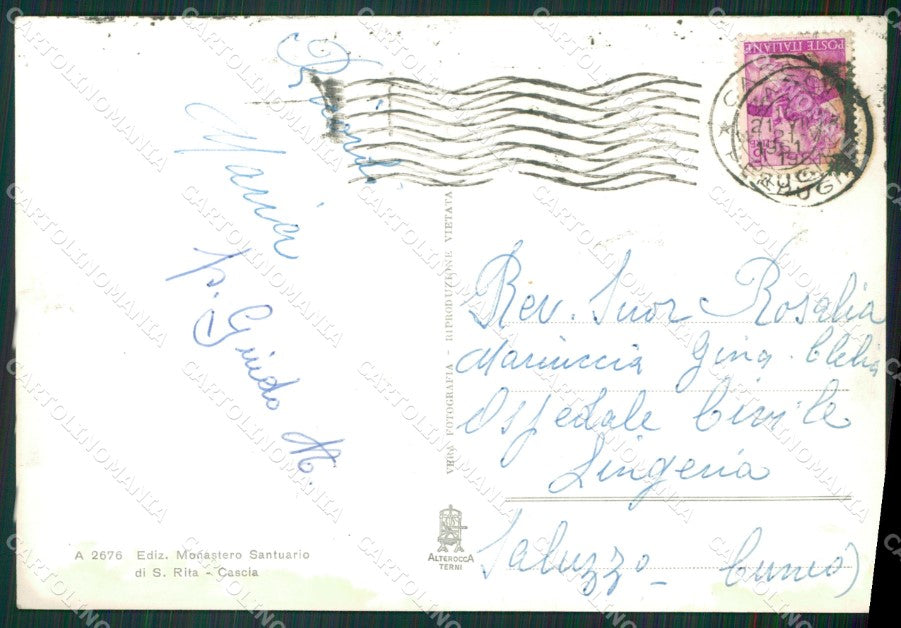 Ricordi
Maria
p. Guido M.
A 2676 Ediz. Monastero Santuario
di S. Rita - Cascia
VERA FOTOGRAFIA - RIPRODUZIONE VIETATA
ALTEROCCA
TERNI
POSTE ITALIANE
1961
Rev. Suor Rosalia
Mariuccia Gina. Clelia
Ospedale Civile
Lingeria
Saluzzo - Cuneo)
CARTOLINOMANIA